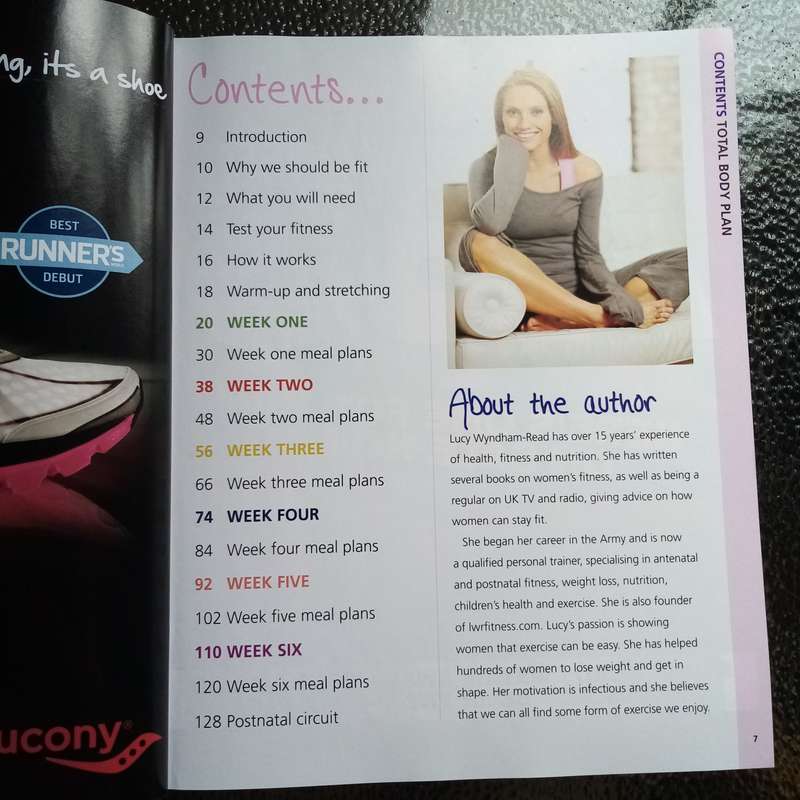 ng, its a shoe
BEST
RUNNER'S
DEBUT
ucony®
Contents...
9 Introduction
10 Why we should be fit
12 What you will need
14 Test your fitness
16 How it works
18 Warm-up and stretching
20 WEEK ONE
30 Week one meal plans
38 WEEK TWO
48 Week two meal plans
56 WEEK THREE
66 Week three meal plans
74 WEEK FOUR
84 Week four meal plans
92 WEEK FIVE
102 Week five meal plans
110 WEEK SIX
120 Week six meal plans
128 Postnatal circuit
About the author
Lucy Wyndham-Read has over 15 years' experience
of health, fitness and nutrition. She has written
several books on women's fitness, as well as being a
regular on UK TV and radio, giving advice on how
women can stay fit.
She began her career in the Army and is now
a qualified personal trainer, specialising in antenatal
and postnatal fitness, weight loss, nutrition,
children's health and exercise. She is also founder
of lwrfitness.com. Lucy's passion is showing
women that exercise can be easy. She has helped
hundreds of women to lose weight and get in
shape. Her motivation is infectious and she believes
that we can all find some form of exercise we enjoy.
CONTENTS TOTAL BODY PLAN
7